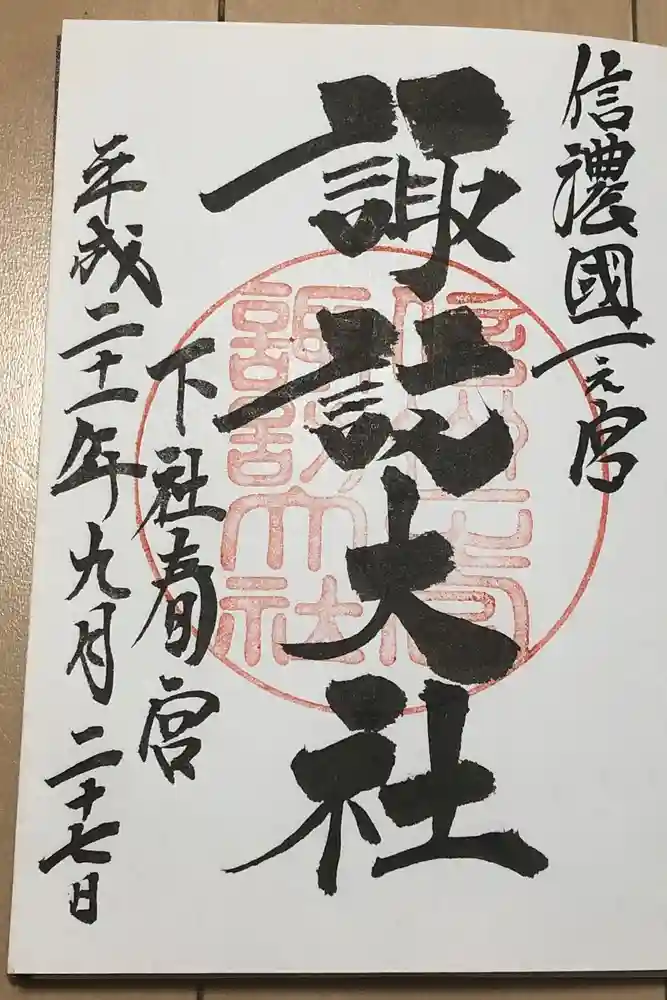 信濃國一之宮
諏訪大社
下社春宮
平成二十一年九月二十七日
諏訪大社